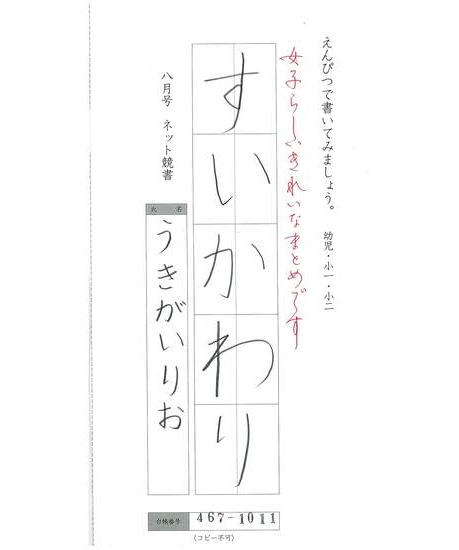 えんぴつで書いてみましょう。 幼児・小一・小二
女子らしいきれいなまとめです
すいかわり
八月号 ネット競書
氏名
うきがいりお
台帳番号 467-1011
(コピー不可)